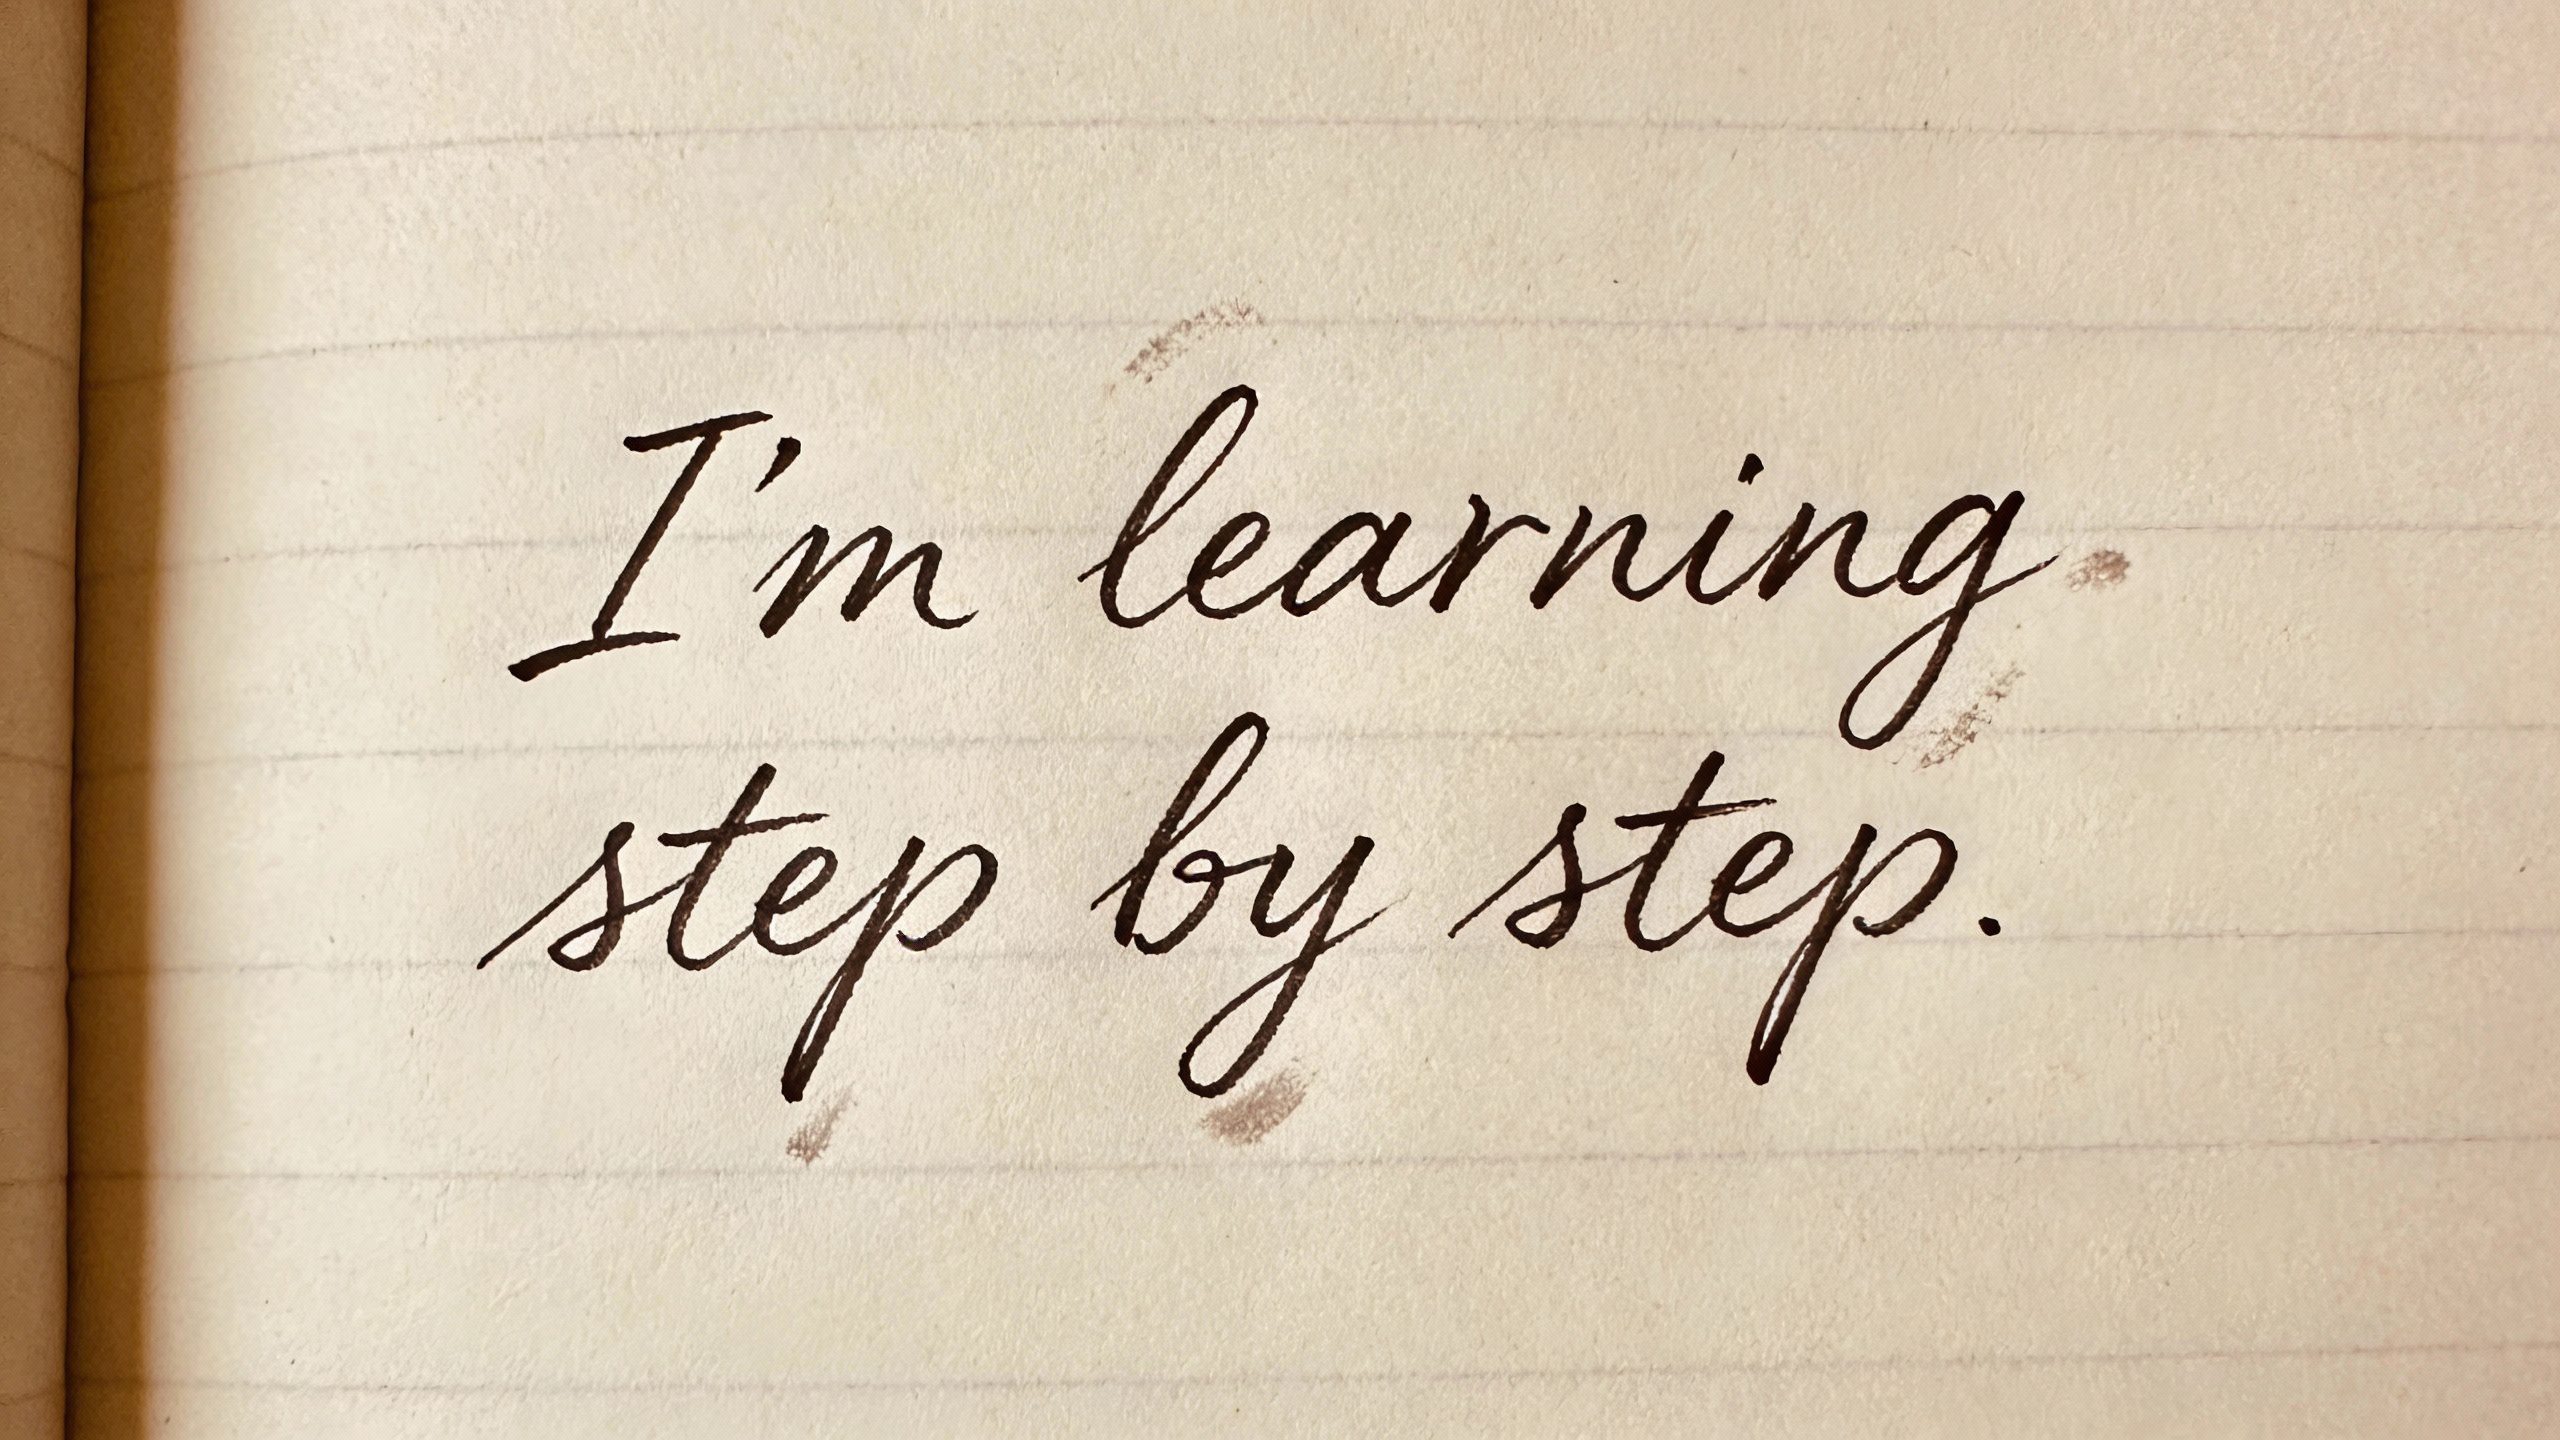 I'm learning
step by step.